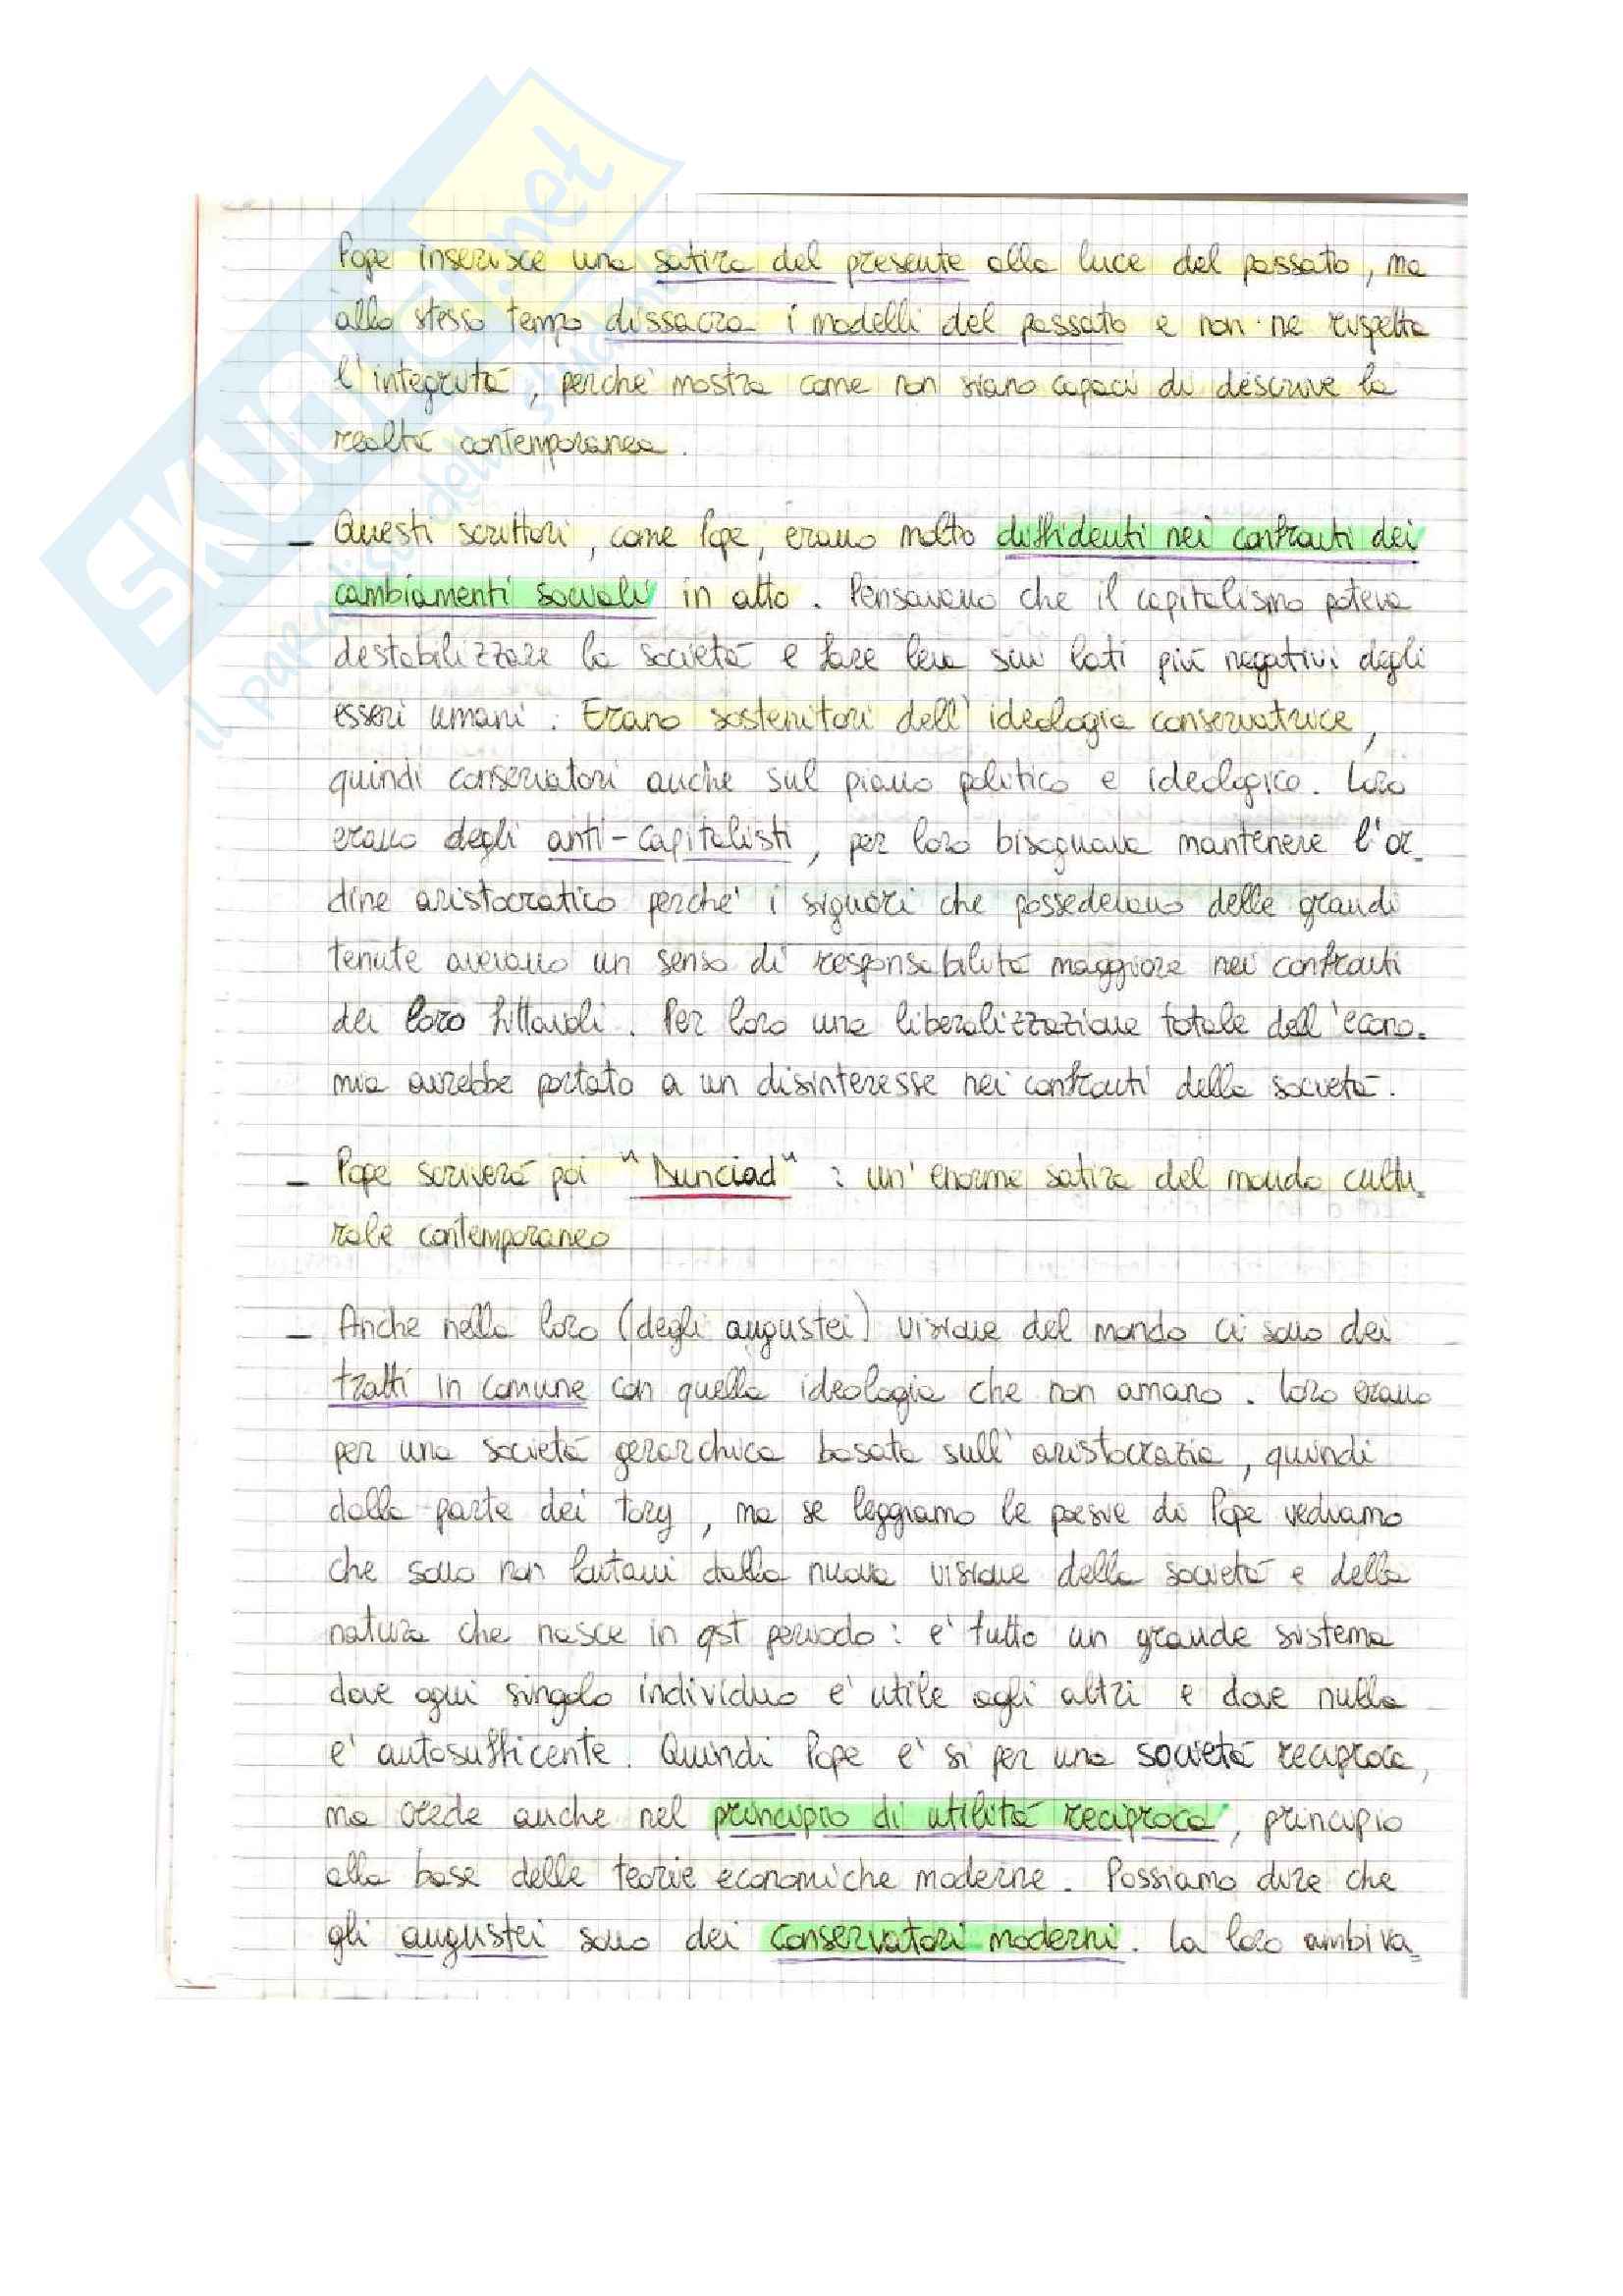 SKUOLA.net
il paradiso dello studente
Pope inserisce una satira del presente alla luce del passato, ma
allo stesso tempo dissacra i modelli del passato e non ne rispetta
l'integrità, perché mostra come non siano capaci di descrive la
realtà contemporanea.
- Questi scrittori, come Pope, erano molto diffidenti nei confronti dei
cambiamenti sociali in atto. Pensavano che il capitalismo poteva
destabilizzare la società e fare leva sui lati più negativi degli
esseri umani. Erano sostenitori dell'ideologia conservatrice,
quindi conservatori anche sul piano politico e ideologico. Loro
erano degli anti-capitalisti, per loro bisognava mantenere l'or-
dine aristocratico perché i signori che possedevano delle grandi
tenute avevano un senso di responsabilità maggiore nei confronti
dei loro fittavoli. Per loro una liberalizzazione totale dell'econo-
mia avrebbe portato a un disinteresse nei confronti della società.
- Pope scriverà poi "Dunciad": un'enorme satira del mondo cultu-
rale contemporaneo
- Anche nella loro (degli augustei) visione del mondo ci sono dei
tratti in comune con quella ideologia che non amano. Loro erano
per una società gerarchica basata sull'aristocrazia, quindi
dalla parte dei tory, ma se leggiamo le poesie di Pope vediamo
che sono non lontani dalla nuova visione della società e della
natura che nasce in qst periodo: è tutto un grande sistema
dove ogni singolo individuo è utile agli altri e dove nulla
è autosufficente. Quindi Pope è sì per una società reciproca,
ma crede anche nel principio di utilità reciproca, principio
alla base delle teorie economiche moderne. Possiamo dire che
gli augustei sono dei conservatori moderni. La loro ambiva=